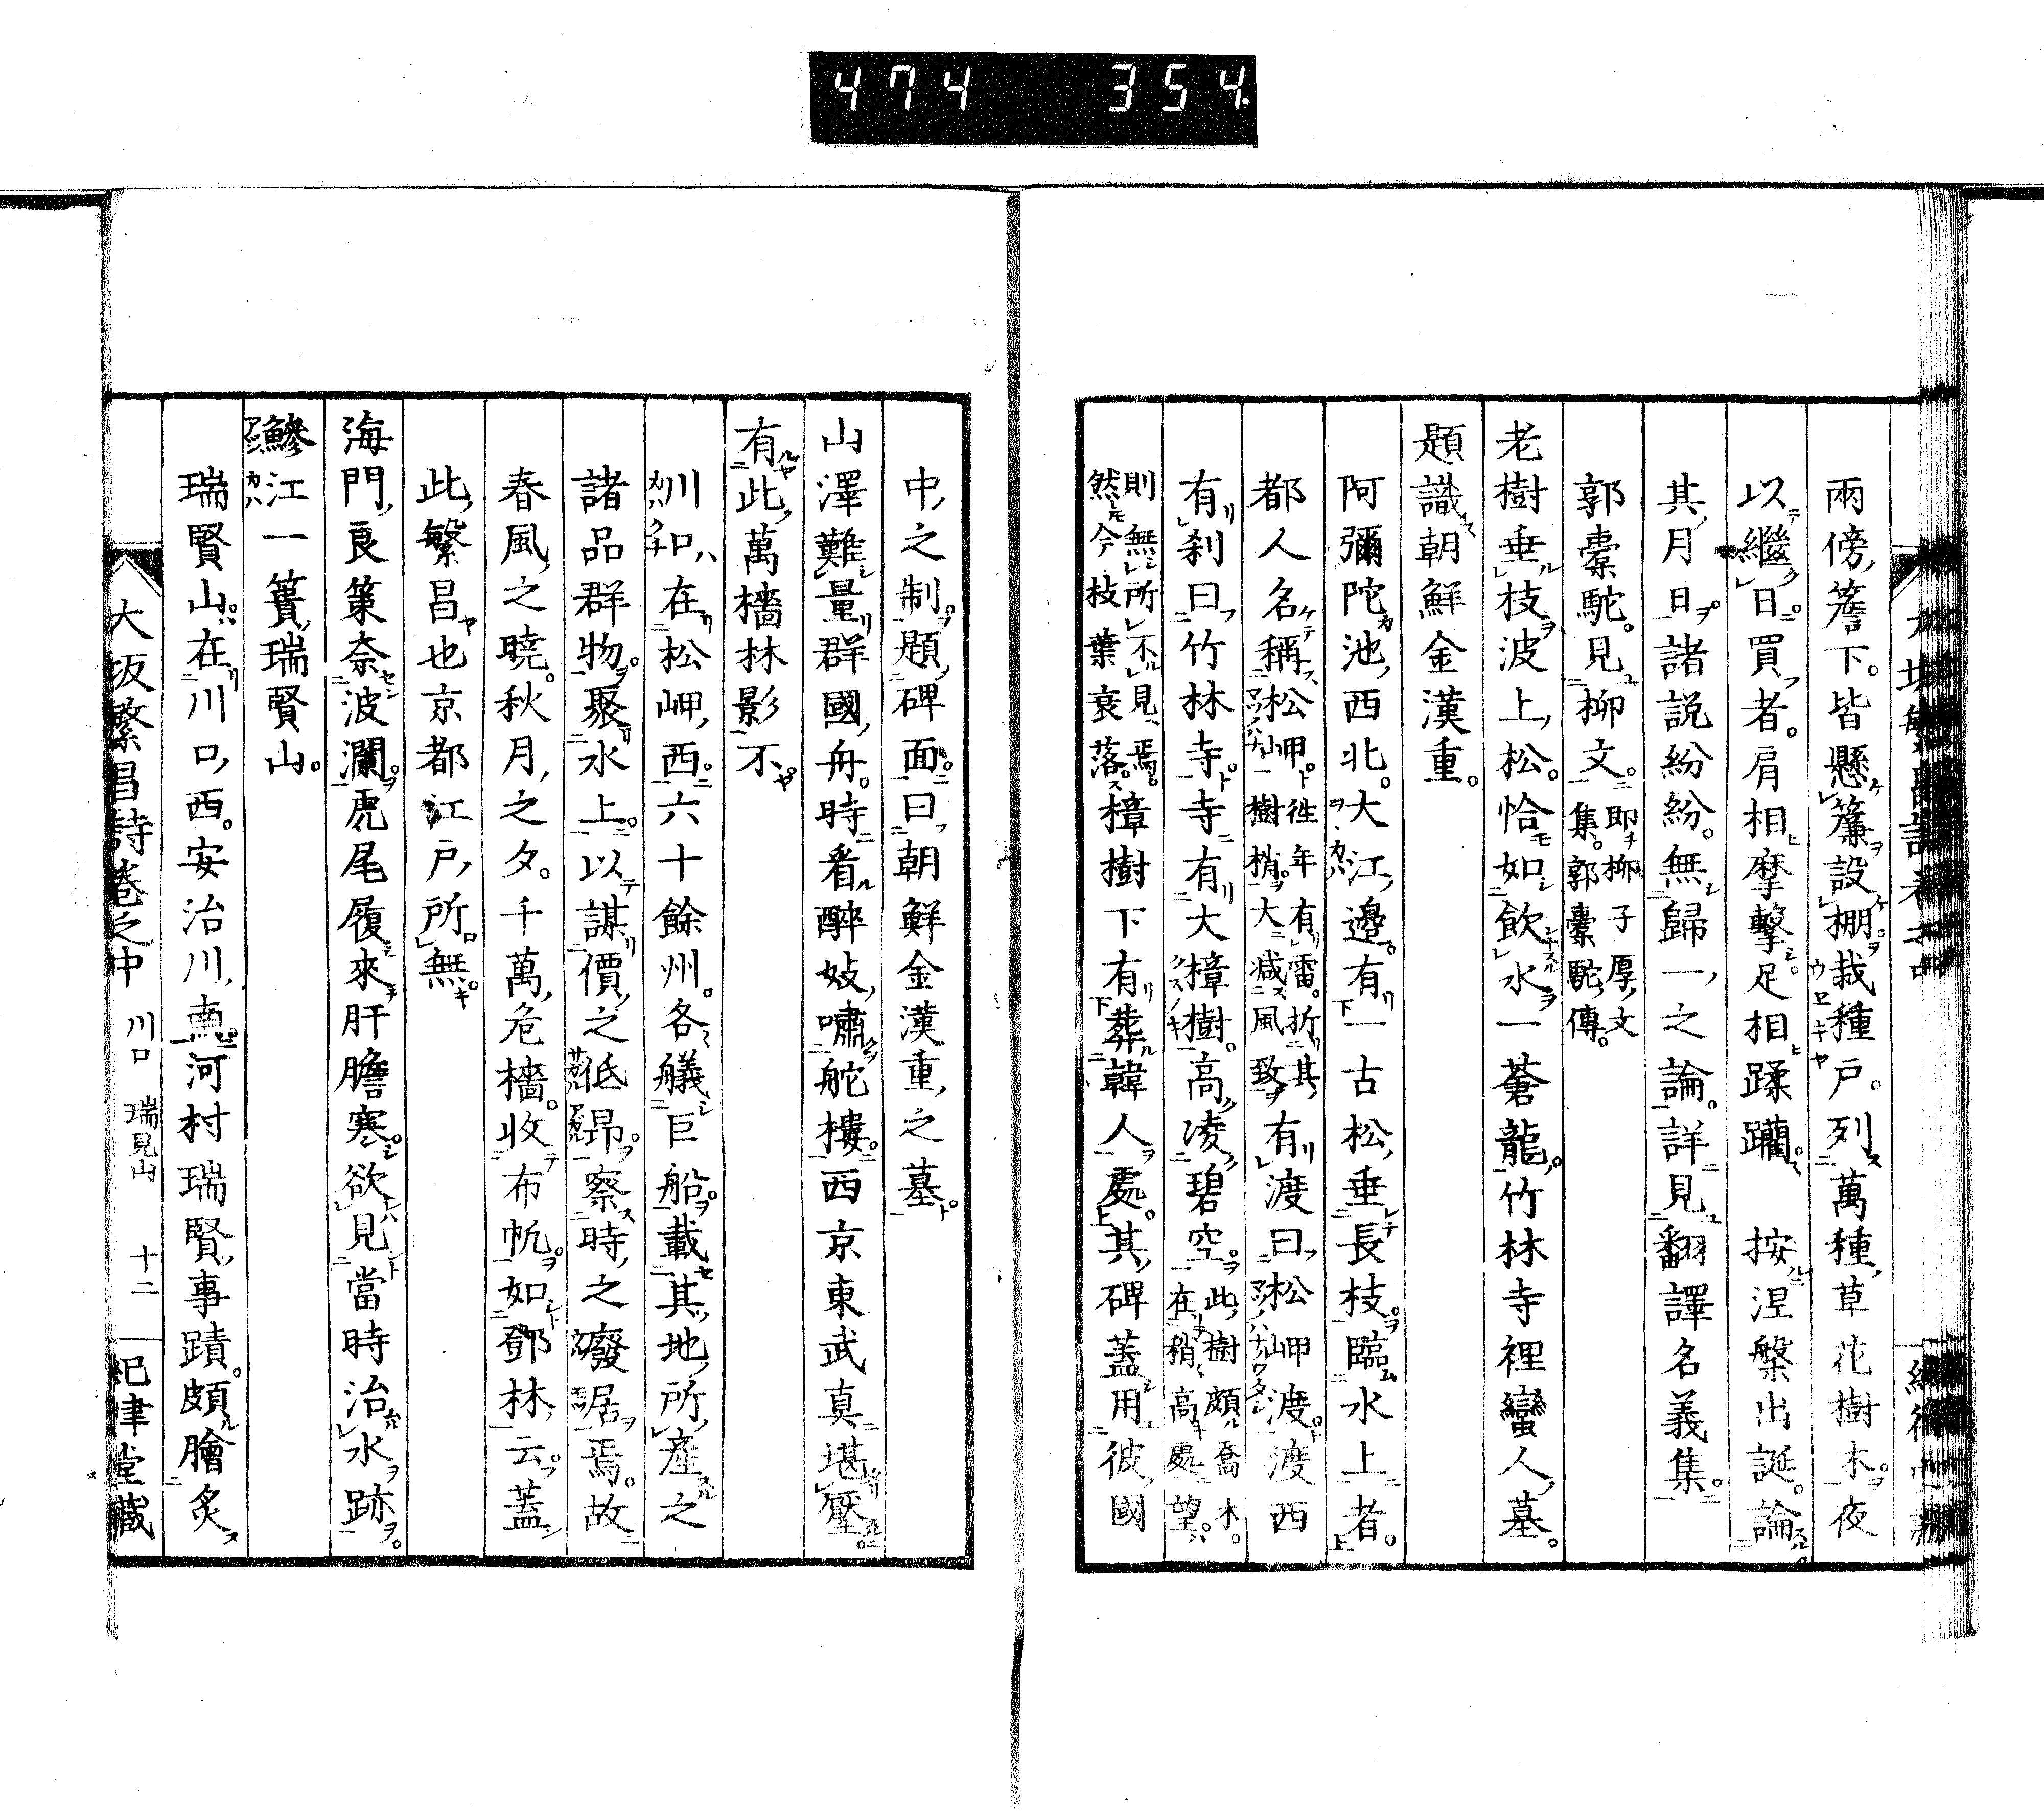 474 354
兩傍簷下。皆懸簾設棚。栽種戶。列萬種草花樹木。夜
以繼日。買者。肩相摩擊。足相蹂躪。 按涅槃出誕。論
其月日。諸説紛紛。無歸一之論。詳見翻譯名義集。
郭橐駝。見柳文。即柳子厚文集。郭橐駝傳。
老樹垂枝波上松。恰如飲水一蒼龍。竹林寺裡蠻人墓。
題識朝鮮金漢重。
阿彌陀池西北。大江邊。有一古松。垂長枝。臨水上者。
都人名稱松岬。往年有雷。折其一樹梢。大減風致。有渡曰松岬渡。渡西
有刹曰竹林寺。寺有大樟樹。高凌碧空。此樹頗喬木。在稍高處望。
則無所不見焉。然今枝葉衰落。樟樹下有葬韓人處。其碑蓋用彼國
中之制。題碑面曰朝鮮金漢重之墓。
山澤難量群國舟。時看醉妓嘯舵樓。西京東武真堪壓。
有此萬檣林影不。
川口。在松岬西。六十餘州。各艤巨船。載其地所產之
諸品群物。聚水上。以謀價之低昻。察時之廢踞焉。故
春風之曉。秋月之夕。千萬危檣。收布帆。如鄧林云。蓋
此繁昌也京都江戶所無。
海門良策奈波瀾。虎尾履來肝膽寒。欲見當時治水跡。
鰺江一簣瑞賢山。
瑞賢山。在川口西。安治川南。河村瑞賢事蹟。頗膾炙
大坂繁昌詩卷之中 川口 瑞見山 十二 祀津堂藏